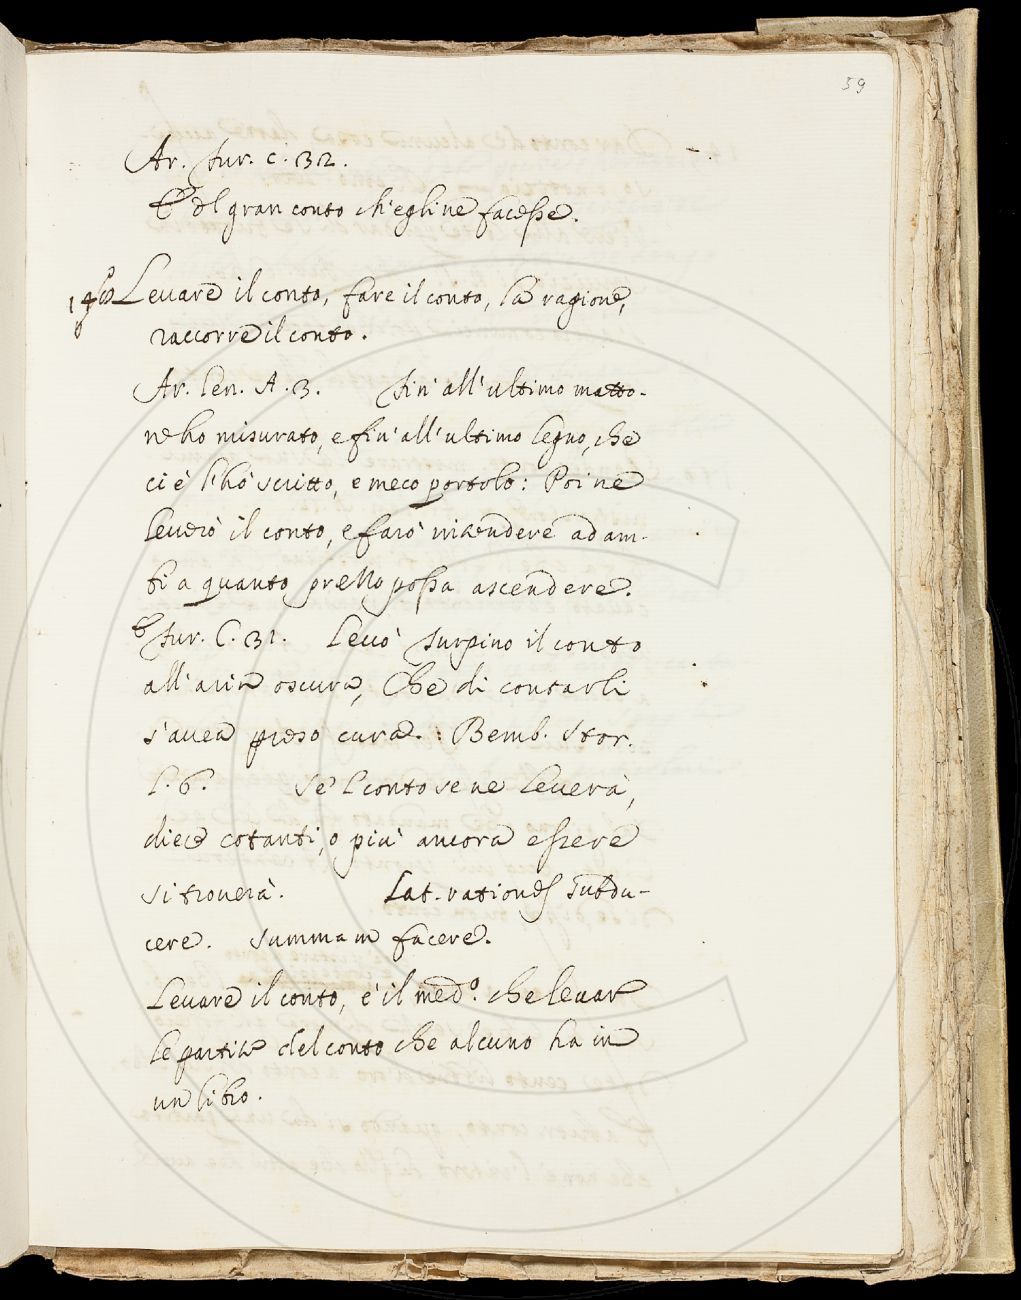 59
Ar. fur. c. 32.
E del gran conto ch'egli ne facesse.
Levare il conto, fare il conto, la ragione,
raccorre il conto.
Ar. Len. A. 3. fin' all' ultimo matto-
ne ho misurato, e fin' all' ultimo legno, che
ci è l' hò scritto, e meco portolo: Poi ne
leverò il conto, e farò intendere ad am-
bi a quanto prezzo possa ascendere.
E fur. C. 31. Levò Turpino il conto
all' aria oscura, Che di contarli
s' avea preso cura. : Bemb. Stor.
l. 6. Se 'l conto se ne leverà,
diece cotanti, o più ancora essere
si troverà. Lat. rationes subdu-
cere. summam facere.
Levare il conto, è il med.o che levar
le partite del conto che alcuno ha in
un libro.